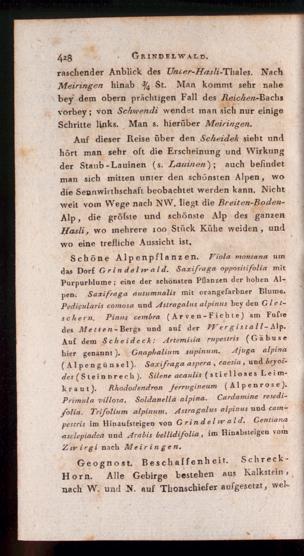 428 GRINDELWALD.
raschender Anblick des Unter-Hasli-Thales. Nach
Meiringen hinab ¾ St. Man kommt sehr nahe
bey dem obern prächtigen Fall des Reichen-Bachs
vorbey; von Schwendi wendet man sich nur einige
Schritte links. Man s. hierüber Meiringen.
Auf dieser Reise über den Scheidek sieht und
hört man sehr oft die Erscheinung und Wirkung
der Staub-Lauinen (s. Lauinen); auch befindet
man sich mitten unter den schönsten Alpen, wo
die Sennwirthschaft beobachtet werden kann. Nicht
weit vom Wege nach NW. liegt die Breiten-Boden-
Alp, die gröſste und schönste Alp des ganzen
Hasli, wo mehrere 100 Stück Kühe weiden, und
wo eine treffliche Aussicht ist.
Schöne Alpenpflanzen. Viola montana um
das Dorf Grindelwald. Saxifraga oppositifolia mit
Purpurblume; eine der schönsten Pflanzen der hohen Al-
pen. Saxifraga autumnalis mit orangefarbner Blume.
Pedicularis comosa und Astragalus alpinus bey den Glet-
schern. Pinus cembra (Arven-Fichte) am Fuſse
des Metten-Bergs und auf der Wergistall-Alp.
Auf dem Scheideck: Artemisia rupestris (Gäbuse
hier genannt). Gnaphalium supinum. Ajuga alpina
(Alpengünsel). Saxifraga aspera, caesia, und bryoi-
des (Steinbrech). Silene acaulis (stielloses Leim-
kraut). Rhododendron ferrugineum (Alpenrose).
Primula villosa. Soldanella alpina. Cardamine resedi-
folia. Trifolium alpinum. Astragalus alpinus und cam-
pestris im Hinaufsteigen von Grindelwald. Gentiana
asclepiadea und Arabis bellidifolia, im Hinabsteigen vom
Zwirgi nach Meiringen.
Geognost. Beschaffenheit. Schreck-
Horn. Alle Gebirge bestehen aus Kalkstein,
nach W. und N. auf Thonschiefer aufgesetzt, wel-